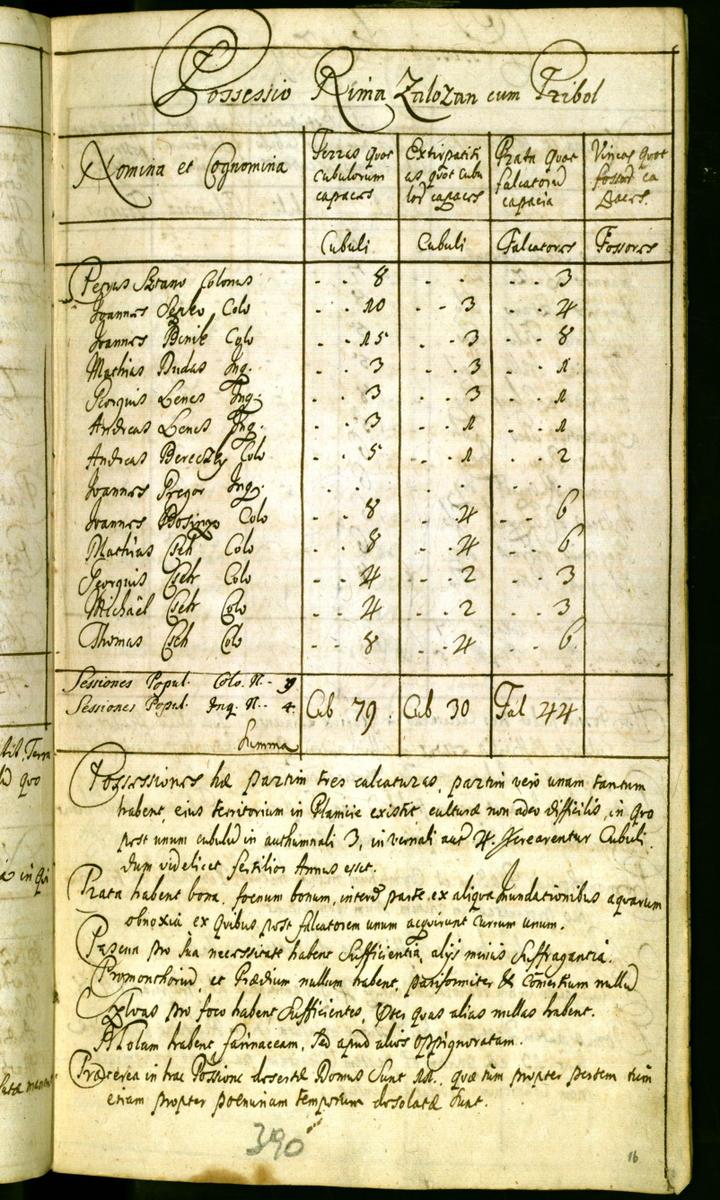 Possessio Rima Zalozan cum Tribol
Nomina et Cognomina Terras quot cubulorum capaces Extirpatitias quot cubulor capaces Prata quot falcatorū capacia Vineas quot fossorū capaces.
Cubuli Cubuli Falcatores Fossores
Petrus Sztano Colonus - - 8 - - - - 3
Joannes Colo - - 10 - - 3 - - 4
Joannes Benik Colo - - 15 - - 3 - - 8
Mathias Dudas Inq. - - 3 - - 3 - - 1
Georgius Lenes Inq. - - 3 - - 3 - - 1
Andreas Lenes Inq. - - 3 - - 1 - - 1
Andreas Bereczky Colo - - 5 - - 1 - - 2
Joannes Gregor Inq.
Joannes Colo - - 8 - - 4 - - 6
Mathias Cseh Colo - - 8 - - 4 - - 6
Georgius Cseh Colo - - 4 - - 2 - - 3
Michaël Cseh Colo - - 4 - - 2 - - 3
Thomas Cseh Colo - - 8 - - 4 - - 6
Sessiones Popul. Colo. N. - 9
Sessiones Popul. Inq. N. - 4.
Summa Cub 79. Cub 30 Fal 44
Possessiones hæ partim tres calcaturas, partim verò unam tantum
habent, eius territorium in Planicie existit culturæ non adeo difficilis, in quo
post unum cubulū in authumnali 3, in vernali aut 4. Cubuli,
dum videlicet fertilior Annus esset.
Prata habent bona, foenum bonum, parte ex aliqua inundationibus aquarum
obnoxia ex quibus post falcatorem unum acquirunt currum unum.
Pascua pro sua necessitate habent sufficientia, alijs suffragantia.
Promonthoriū, et Prædium nullum habent, pariformiter & nullū
Sylvas pro foco habent sufficientes, quas alias nullas habent.
Molam habent farinaceam, sed apud alios oppignoratam.
Præterea in hac Possione desertæ Domus sunt 11. quæ tùm propter pestem tùm
etiam propter poenuriam temporum desolatæ sunt.
390
16